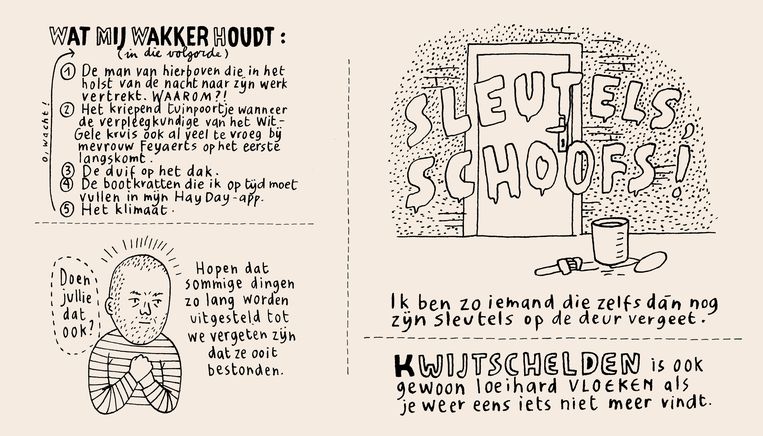 WAT MIJ WAKKER HOUDT :
(in die volgorde)
O, wacht !
① De man van hierboven die in het
holst van de nacht naar zijn werk
vertrekt. WAAROM?!
② Het kriepend tuinpoortje wanneer
de verpleegkundige van het Wit-
Gele kruis ook al veel te vroeg bij
mevrouw Feyaerts op het eerste
langskomt.
③ De duif op het dak.
④ De bootkratten die ik op tijd moet
vullen in mijn Hay Day-app.
⑤ Het klimaat.
Doen
jullie
dat
ook?
Hopen dat
sommige dingen
zo lang worden
uitgesteld tot
we vergeten zijn
dat ze ooit
bestonden.
SLEUTELS,
SCHOOFS!
Ik ben zo iemand die zelfs dán nog
zijn sleutels op de deur vergeet.
KWIJTSCHELDEN is ook
gewoon loeihard VLOEKEN als
je weer eens iets niet meer vindt.